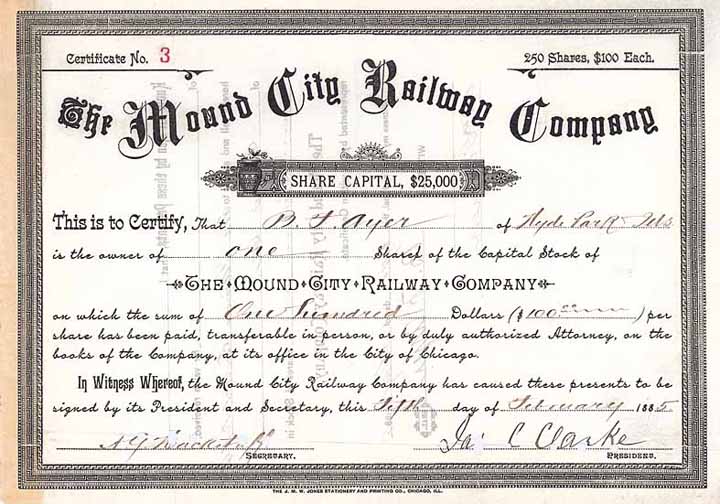 Certificate No. 3
250 Shares, $100 Each.
The Mound City Railway Company
SHARE CAPITAL, $25,000
This is to Certify, That B. F. Ayer of Hyde Park Ills
is the owner of one Shares of the Capital Stock of
THE MOUND CITY RAILWAY COMPANY
on which the sum of One Hundred Dollars ($100.00) per
share has been paid, transferable in person, or by duly authorized Attorney, on the
books of the Company, at its office in the City of Chicago.
In Witness Whereof, the Mound City Railway Company has caused these presents to be
signed by its President and Secretary, this Fifth day of February 1885
C Clarke
SECRETARY. PRESIDENT.
THE J. M. W. JONES STATIONERY AND PRINTING CO., CHICAGO, ILL.